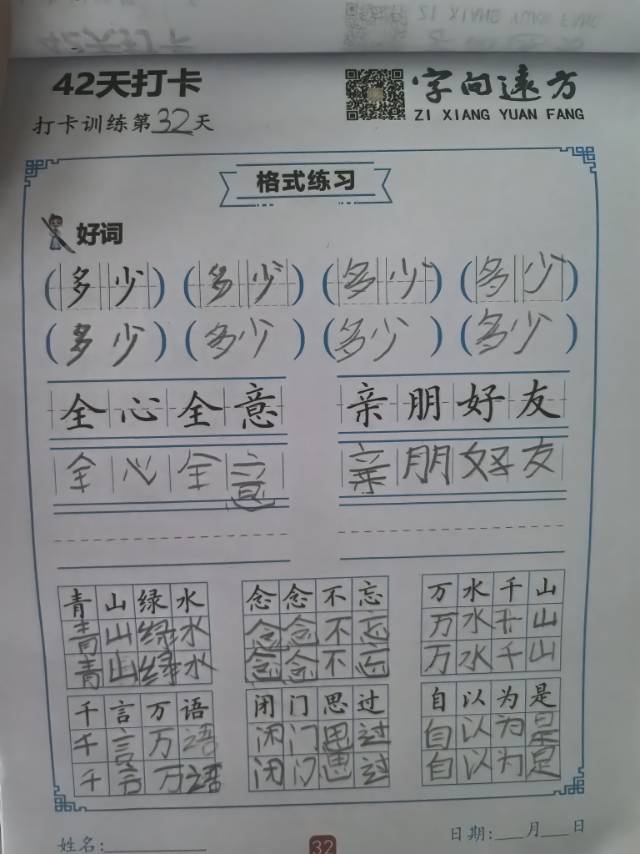 42天打卡
字向远方
ZI XIANG YUAN FANG
打卡训练第32天
格式练习
好词
(多少) (多少) (多少) (多少)
(多少) (多少) (多少) (多少)
全心全意 亲朋好友
全心全意 亲朋好友
青山绿水 念念不忘 万水千山
青山绿水 念念不忘 万水千山
青山绿水 念念不忘 万水千山
千言万语 闭门思过 自以为是
千言万语 闭门思过 自以为是
千言万语 闭门思过 自以为是
姓名: 32 日期: 月 日